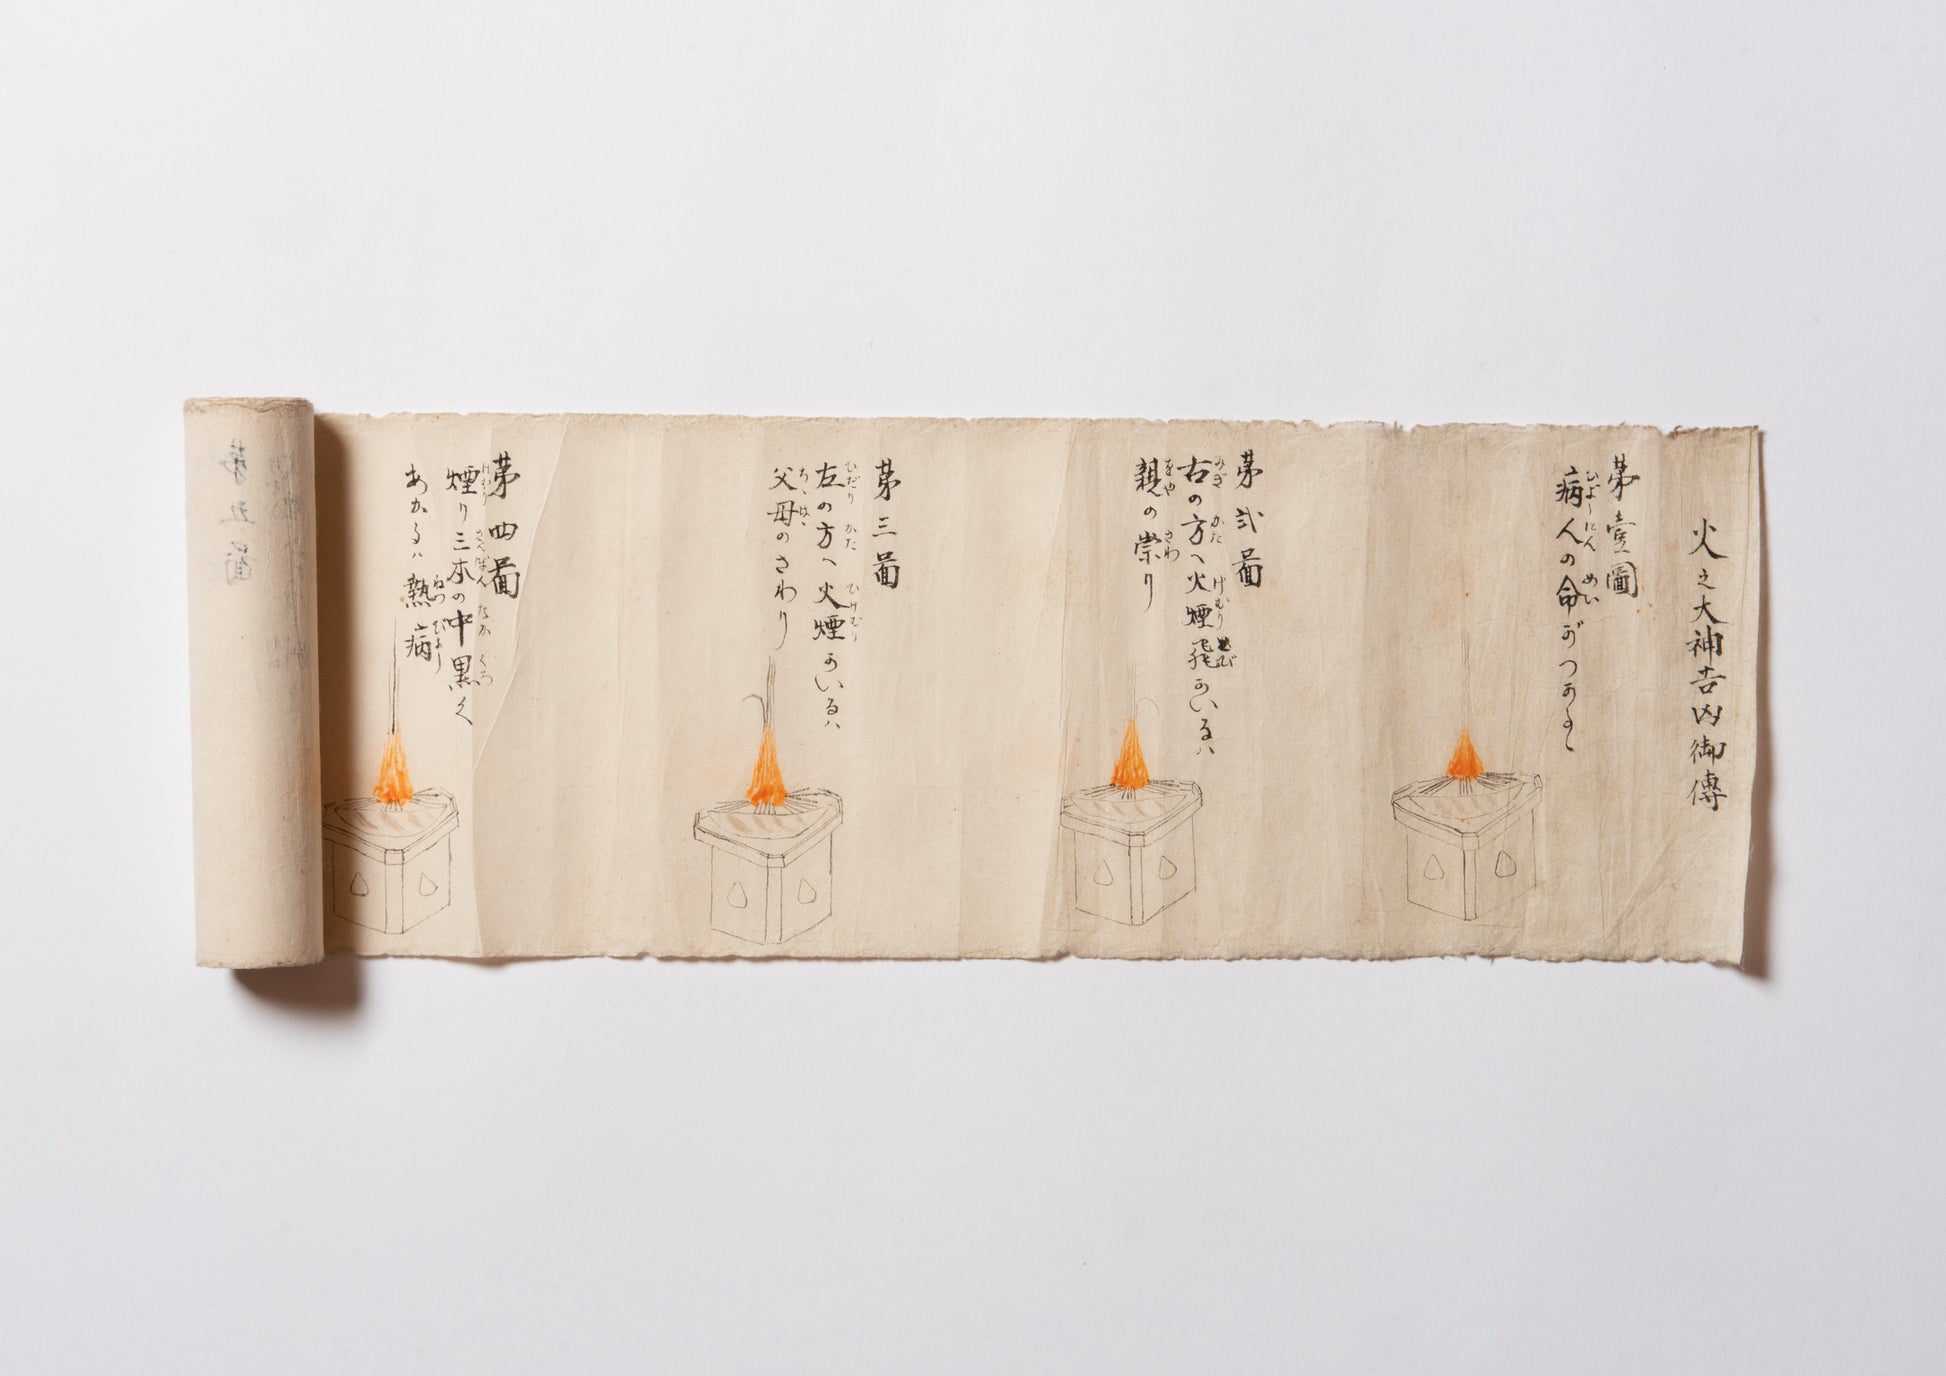 火之大神吉凶御傳
苐壹圖
病人の命がつかる
苐弐圖
右の方へ火煙飛かいるハ
親の崇り
苐三圖
左の方へ火煙かいるハ
父母のさわり
苐四圖
煙り三本の中黒く
あがるハ熱病
苐五圖